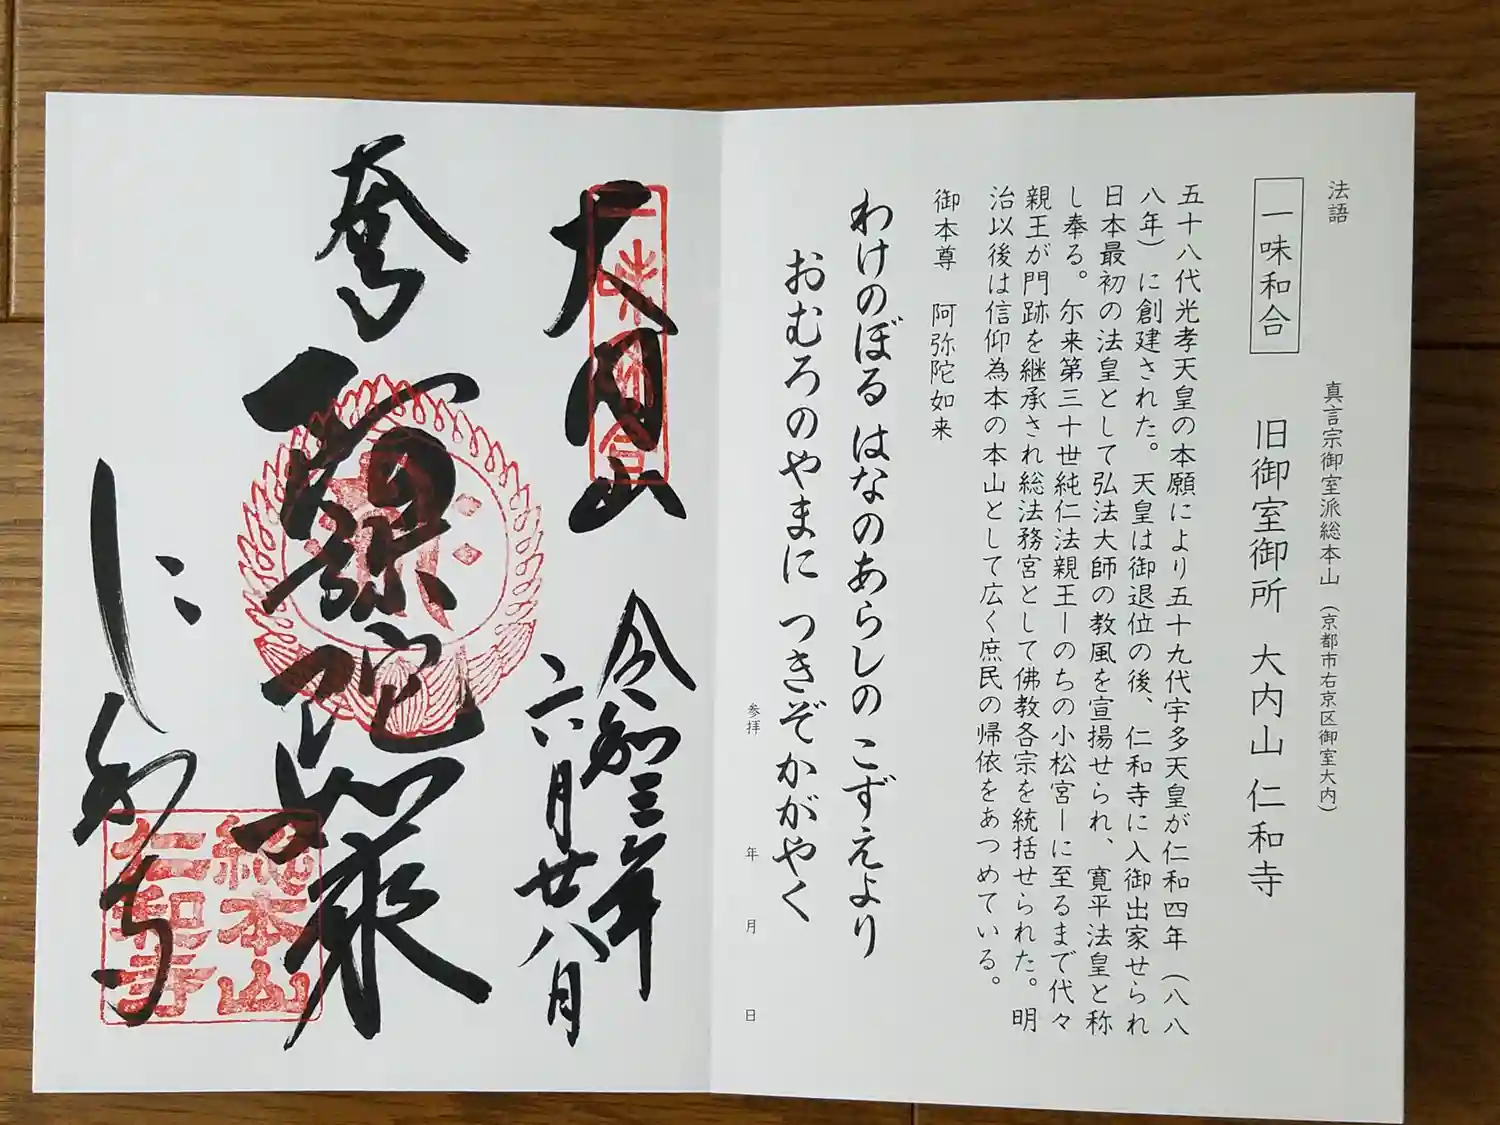 法語
真言宗御室派総本山（京都市右京区御室大内）
一味和合
旧御室御所 大内山 仁和寺
五十八代光孝天皇の本願により五十九代宇多天皇が仁和四年（八八
八年）に創建された。天皇は御退位の後、仁和寺に入御出家せられ
日本最初の法皇として弘法大師の教風を宣揚せられ、寛平法皇と称
し奉る。尓来第三十世純仁法親王ーのちの小松宮ーに至るまで代々
親王が門跡を継承され総法務宮として佛教各宗を統括せられた。明
治以後は信仰為本の本山として広く庶民の帰依をあつめている。
御本尊 阿弥陀如来
わけのぼる はなのあらしの こずえより
おむろのやまに つきぞかがやく
参拝 年 月 日
一味和合
大内山
令和三年
六月廿八日
奉
阿弥陀如来
にわじ
総本山
仁和寺